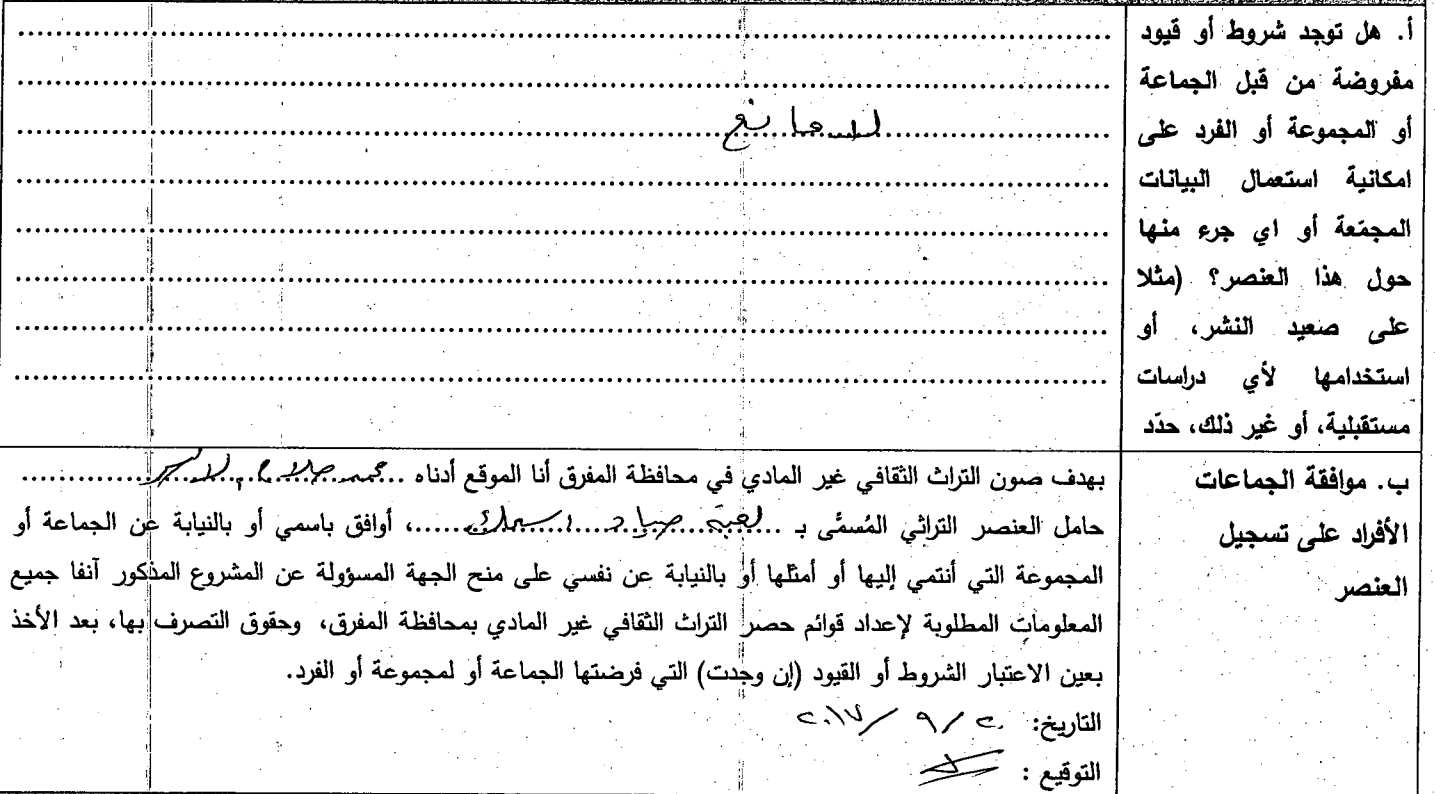 أ. هل توجد شروط أو قيود
مفروضة من قبل الجماعة
أو المجموعة أو الفرد على
امكانية استعمال البيانات
المجمّعة أو اي جرء منها
حول هذا العنصر؟ (مثلا
على صعيد النشر، أو
استخدامها لأي دراسات
مستقبلية، أو غير ذلك، حدّد
لا مانع
ب. موافقة الجماعات
الأفراد على تسجيل
العنصر
بهدف صون التراث الثقافي غير المادي في محافظة المفرق أنا الموقع أدناه محمد صلاح
حامل العنصر التراثي المُسمَّى بـ لعبة صياد السمك، أوافق باسمي أو بالنيابة عن الجماعة أو
المجموعة التي أنتمي إليها أو أمثلها أو بالنيابة عن نفسي على منح الجهة المسؤولة عن المشروع المذكور آنفا جميع
المعلومات المطلوبة لإعداد قوائم حصر التراث الثقافي غير المادي بمحافظة المفرق، وحقوق التصرف بها، بعد الأخذ
بعين الاعتبار الشروط أو القيود (إن وجدت) التي فرضتها الجماعة أو لمجموعة أو الفرد.
التاريخ: ٢٠ / ٩ / ٢٠١٧
التوقيع :